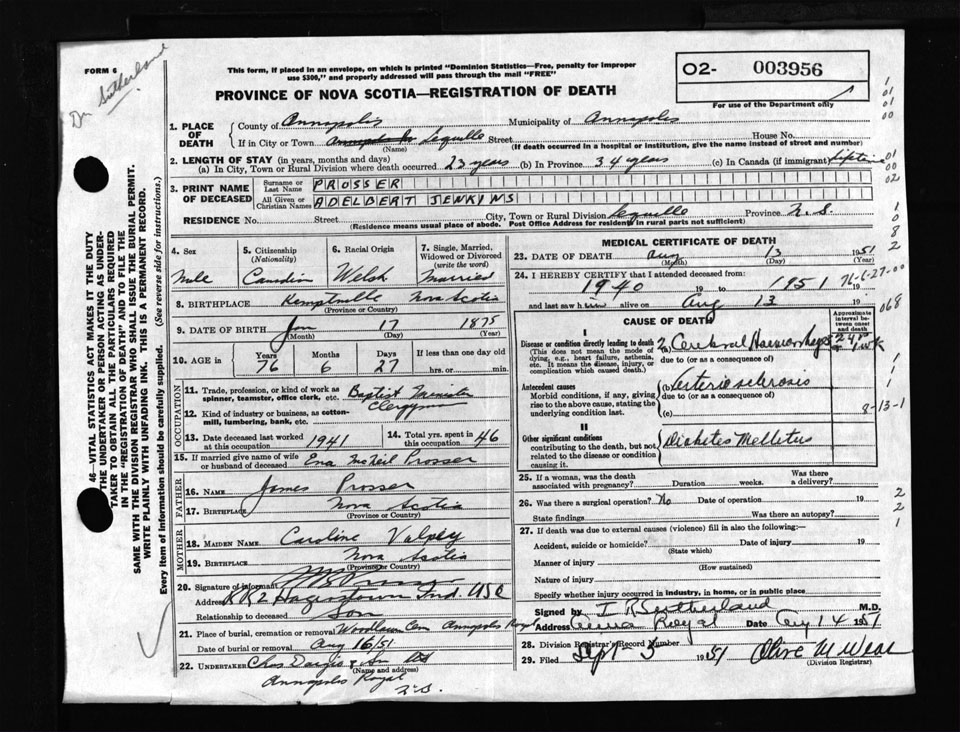 FORM 6
Dr Sutherland
This form, if placed in an envelope, on which is printed "Dominion Statistics—Free, penalty for improper
use $300," and properly addressed will pass through the mail "FREE"
PROVINCE OF NOVA SCOTIA—REGISTRATION OF DEATH
O2- 003956
For use of the Department only
1. PLACE OF DEATH
County of Annapolis Municipality of Annapolis
If in City or Town Lequille Street House No.
(Name) (If death occurred in a hospital or institution, give its name instead of street and number)
2. LENGTH OF STAY (in years, months and days)
(a) In City, Town or Rural Division where death occurred 23 years (b) In Province 34 years (c) In Canada (if immigrant) Lifetime
3. PRINT NAME OF DECEASED
Surname or Last Name PROSSER
All Given or Christian Names ADELBERT JENKINS
RESIDENCE No. Street City, Town or Rural Division Lequille Province N.S.
(Residence means usual place of abode. Post Office Address for residents in rural parts not sufficient)
4. Sex
Male
5. Citizenship (Nationality)
Canadian
6. Racial Origin
Welsh
7. Single, Married, Widowed or Divorced (write the word)
Married
8. BIRTHPLACE Kemptville Nova Scotia
(Province or Country)
9. DATE OF BIRTH Jan 17 1875
(Month) (Day) (Year)
10. AGE in Years Months Days If less than one day old
76 6 27 hrs. or min.
OCCUPATION
11. Trade, profession, or kind of work as
spinner, teamster, office clerk, etc. Baptist Minister
Clergyman
12. Kind of industry or business, as cotton-
mill, lumbering, bank, etc.
13. Date deceased last worked
at this occupation 1941
14. Total yrs. spent in
this occupation 46
15. If married give name of wife
or husband of deceased Ena McNeil Prosser
FATHER
16. NAME James Prosser
17. BIRTHPLACE Nova Scotia
(Province or Country)
MOTHER
18. MAIDEN NAME Caroline Valpey
19. BIRTHPLACE Nova Scotia
(Province or Country)
20. Signature of informant
Address RR2 Hagerstown Ind. USA
Relationship to deceased Son
21. Place of burial, cremation or removal Woodlawn Cem Annapolis Royal
Date of burial or removal Aug 16/51
22. UNDERTAKER Chas Dargie & Son Ltd
(Name and address)
Annapolis Royal
N.S.
MEDICAL CERTIFICATE OF DEATH
23. DATE OF DEATH Aug 13 1951
(Month) (Day)
24. I HEREBY CERTIFY that I attended deceased from:
1940 19 to 1951 19
76-6-27-00
and last saw him alive on Aug 13 19
068
CAUSE OF DEATH
Approximate interval between onset and death
I
Disease or condition directly leading to death
(This does not mean the mode of
dying, e.g., heart failure, asthenia,
etc. It means the disease, injury, or
complication which caused death.)
2 Cerebral Haemorrhages
due to (or as a consequence of)
Antecedent causes
Morbid conditions, if any, giving
rise to the above cause, stating the
underlying condition last.
(b) Arteriosclerosis
due to (or as a consequence of)
(c)
8-13-1
II
Other significant conditions
contributing to the death, but not
related to the disease or condition
causing it.
Diabetes Mellitus
25. If a woman, was the death
associated with pregnancy? Duration weeks. Was there a delivery?
26. Was there a surgical operation? No Date of operation 19
State findings Was there an autopsy?
27. If death was due to external causes (violence) fill in also the following:—
Accident, suicide or homicide? Date of injury 19
(State which)
Manner of injury
(How sustained)
Nature of injury
Specify whether injury occurred in industry, in home, or in public place
Signed by I R Sutherland M.D.
Address Anna Royal Date Aug 14 1951
28. Division Registrar's Record Number
29. Filed Sept-5 1951 Olive M Wear
(Division Registrar)
46—VITAL STATISTICS ACT MAKES IT THE DUTY
THE UNDERTAKER OR PERSON ACTING AS UNDER-
TAKER TO OBTAIN ALL THE PARTICULARS REQUIRED
IN THE "REGISTRATION OF DEATH" AND TO FILE THE
SAME WITH THE DIVISION REGISTRAR WHO SHALL ISSUE THE BURIAL PERMIT.
WRITE PLAINLY WITH UNFADING INK. THIS IS A PERMANENT RECORD.
Every item of information should be carefully supplied. (See reverse side for instructions.)